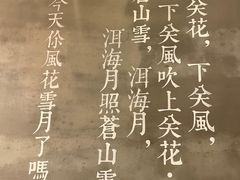 关花，下关風，
下关風吹上关花．
山雪，洱海月，
洱海月照蒼山雪
今天你風花雪月了嗎